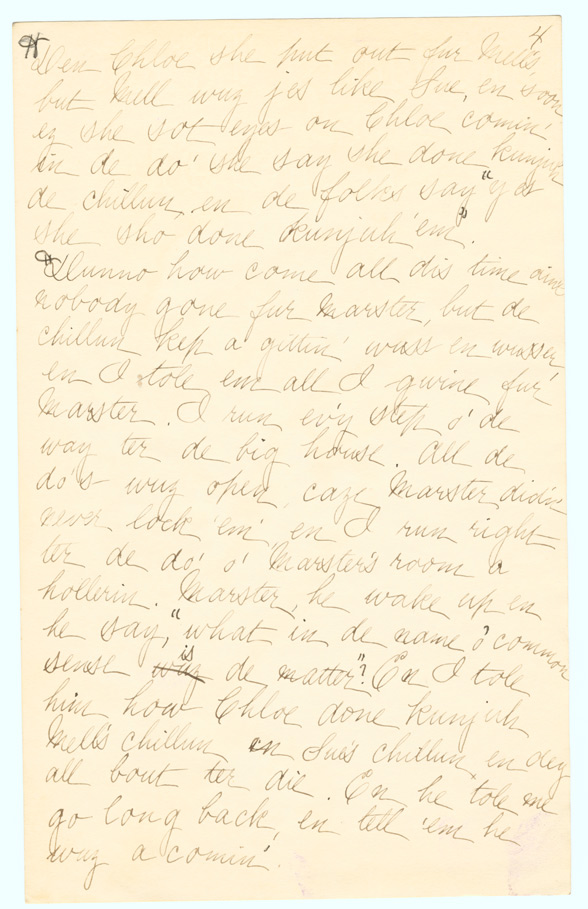 4
¶ Den Chloe she put out fur Mell's
but Mell wuz jes like Sue, en soon
ez she sot eyes on Chloe comin'
in de do' she say she done kunjuh
de chillun, en de folks say "yes
she sho' done kunjuh 'em".
¶ Dunno how come all dis time aint
nobody gone fur Marster, but de
chillun kep a gittin' wuss en wusser
en I tole em all I gwine fur
Marster. I run ev'y step o' de
way ter de big house. All de
do's wuz open, caze Marster didn'
never lock 'em, en I run right
ter de do' o' Marster's room a
hollerin. Marster, he wake up en
he say, "what in de name o' common
sense wuz is de matter"? En I tole
him how Chloe done kunjuh
Mell's chillun en Sue's chillun, en dey
all bout ter die. En he tole me
go long back, en tell 'em he
wuz a comin'.